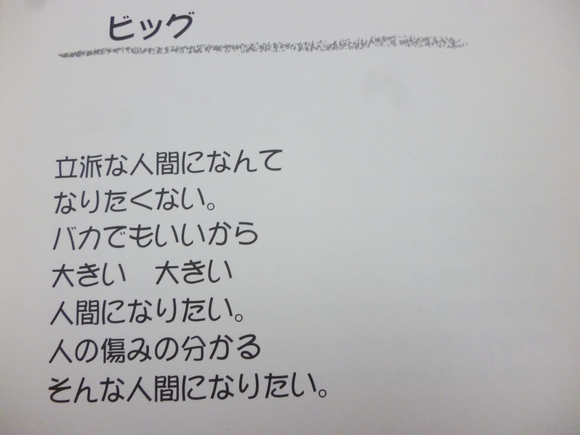 ビッグ
立派な人間になんて
なりたくない。
バカでもいいから
大きい　大きい
人間になりたい。
人の傷みの分かる
そんな人間になりたい。